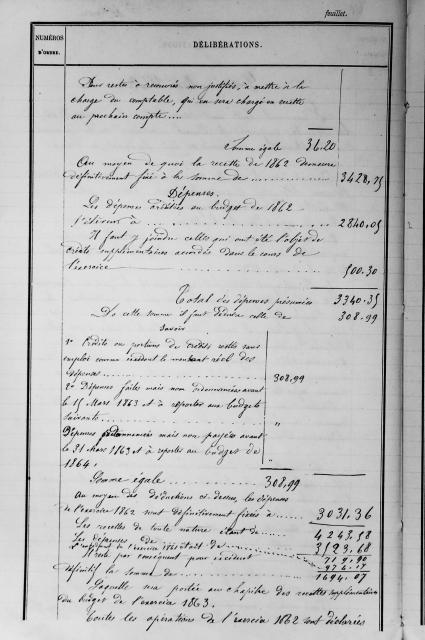 feuillet.
NUMÉROS
D'ORDRE.
DÉLIBÉRATIONS.
Pour restes à recouvrer non justifiés, à mettre à la
charge du comptable, qui en sera chargé en recette
au prochain compte....
Somme égale 36.20
Au moyen de quoi la recette de 1862 demeure
définitivement fixée à la somme de .......... 3428,75
Dépenses.
Les dépenses créditées au budget de 1862
s'élèvent à .......... 2840.05
Il faut y joindre celles qui ont été l'objet de
crédits supplémentaires accordés dans le cours de
l'exercice .......... 500.30
Total des dépenses présumées 3340.35
De cette somme il faut déduire celle de 308.99
Savoir
1º Crédits ou portions de crédits restés sans
emploi comme excédant le montant réel des
dépenses .......... 308,99
2º Dépenses faites mais non ordonnancées avant
le 15 Mars 1863 et à reporter aux budgets
suivants .......... "
Dépenses ordonnancées mais non payées avant
le 31 Mars 1863 et à reporter au budget de
1864. "
Somme égale .......... 308,99
Au moyen des déductions ci-dessus, les dépenses
de l'exercice 1862 sont définitivement fixées à ..... 3031.36
Les recettes de toute nature étant de ..... 4243.58
Les dépenses de ..... 3523.68
de l'exercice 1861 était de ..... 719.90
Il reste par conséquent pour excédent 974.17
définitif la somme de .......... 1694.07
Laquelle sera portée au chapitre des recettes supplémentaires
du budget de l'exercice 1863.
Toutes les opérations de l'exercice 1862 sont déclarées